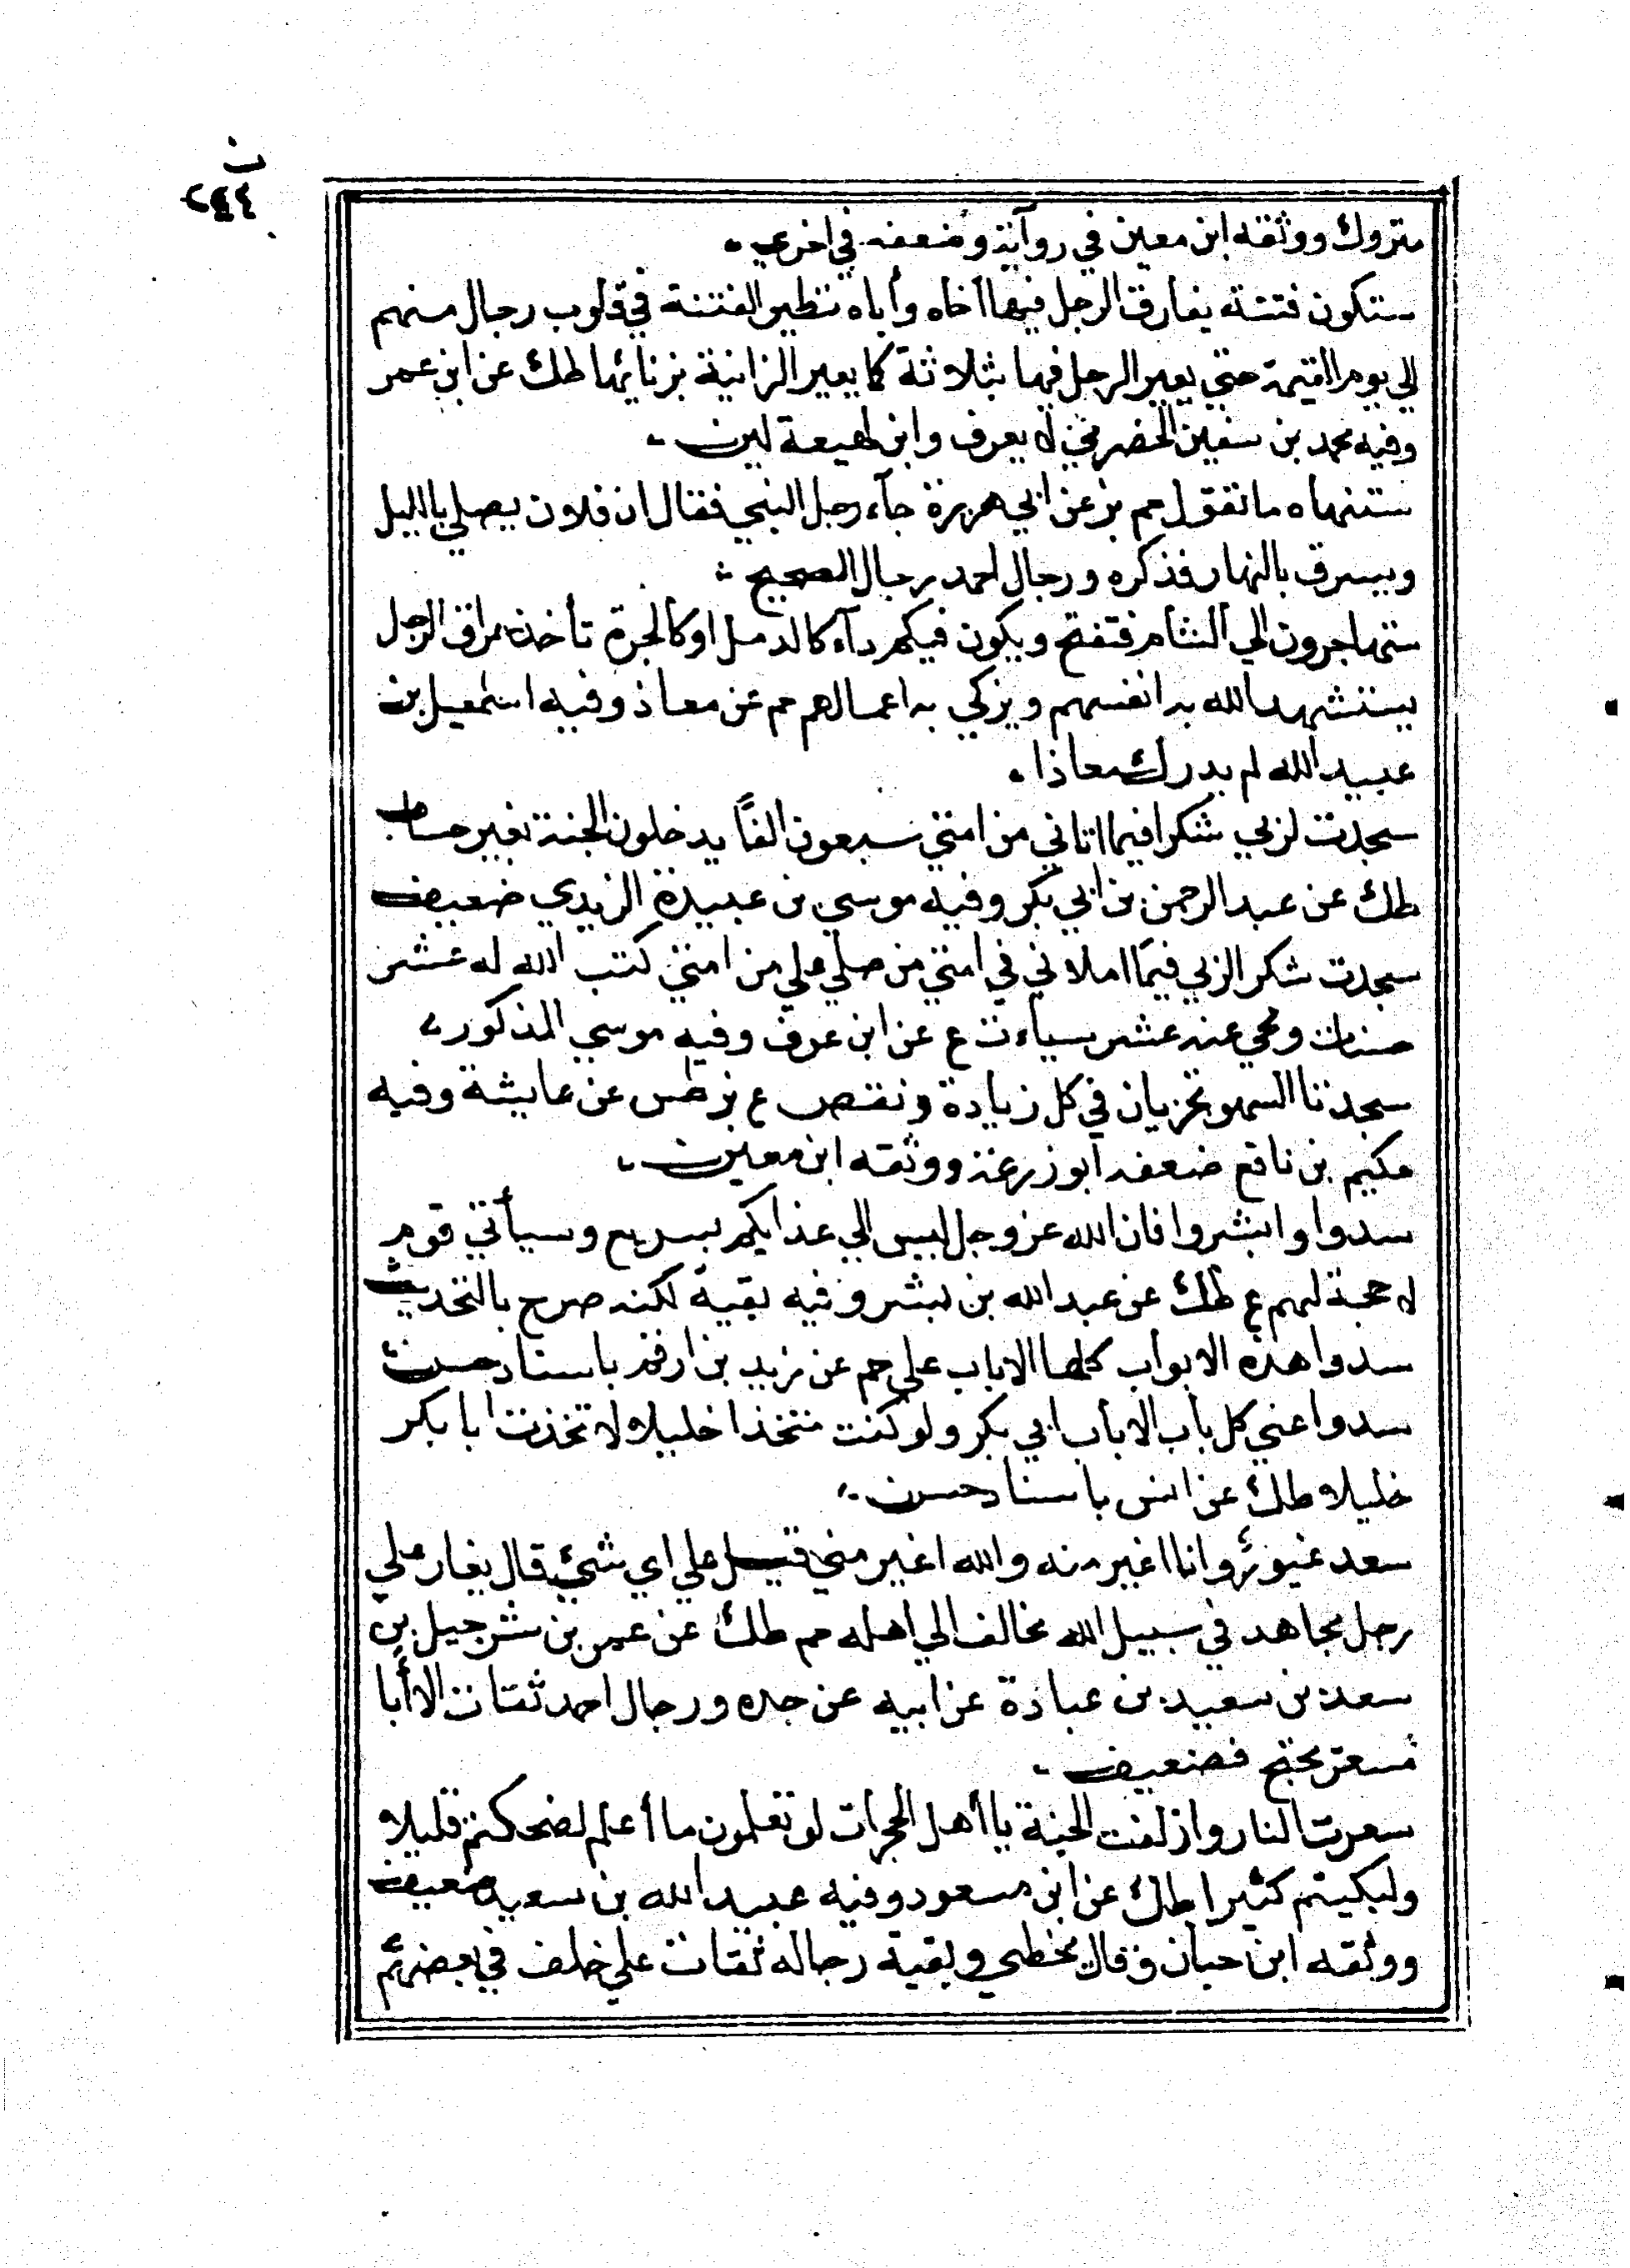 ن
٢٤٤
متروك ووثقه ابن معين في رواية وضعفه في اخري
ستكون فتنة يفارق الرجل فيها اخاه وأباه تطير الفتنة في قلوب رجال منهم
الي يوم القيمة حتي يعير الرجل فيها بثلاثة كما يعير الزانية بزنائها طك عن ابن عمر
وفيه محمد بن سفين الحضرمي لا يعرف وابن لهيعة لين
ستنهاه ما تقول حم بز عن ابي هريرة جآء رجل النبي فقال ان فلان يصلي بالليل
ويسرق بالنهار فذكره ورجال احمد رجال الصحيح
ستهاجرون الي الشام فتفتح ويكون فيكم دآء كالدمل او كالجرة تأخذ بمراق الرجل
يستشهد الله به انفسهم ويزكي به اعمالهم حم عن معاذ وفيه اسمعيل بن
عبيد الله لم يدرك معاذا
سجدت لربي شكرا فيما اتاني من امتي سبعون الفًا يدخلون الجنة بغير حساب
طك عن عبد الرحمن بن ابي بكر وفيه موسي بن عبيدة الزيدي ضعيف
سجدت شكرا لربي فيما املاني في امتي من صلي علي من امتي كتب الله له عشر
حسنات ومحي عنه عشر سياءت ع عن ابن عوف وفيه موسي المذكور
سجدتا السهو تجزيان في كل زيادة ونقص ع بز طس عن عايشة وفيه
حكيم بن نافع ضعفه ابو زرعة ووثقه ابن معين
سدوا وابشروا فان الله عز وجل ليس الي عذابكم بسريع وسيأتي قوم
لا حجة لهم ع طك عن عبد الله بن بشر وفيه بقية لكنه صرح بالتحديث
سدوا هذه الابواب كلها الا باب علي حم عن زيد بن ارقم باسناد حسن
سدوا عني كل باب الا باب ابي بكر ولو كنت متخذا خليلا لاتخذت ابا بكر
خليلا طك عن انس باسناد حسن
سعد غيور وانا اغير منه والله اغير مني قيل علي اي شئ قال يغار علي
رجل مجاهد في سبيل الله يخالف الي اهله حم طك عن عمر بن شرحبيل بن
سعد بن سعيد بن عبادة عن ابيه عن جده ورجال احمد ثقات الا أبا
معشر نجيح فضعيف
سعرت النار وازلفت الجنة يا أهل الحجرات لو تعلمون ما أعلم لضحكتم قليلا
ولبكيتم كثيرا طك عن ابن مسعود وفيه عبيد الله بن سعيد ضعيف
ووثقه ابن حبان وقال يخطي وبقية رجاله ثقات علي خلف في بعضهم